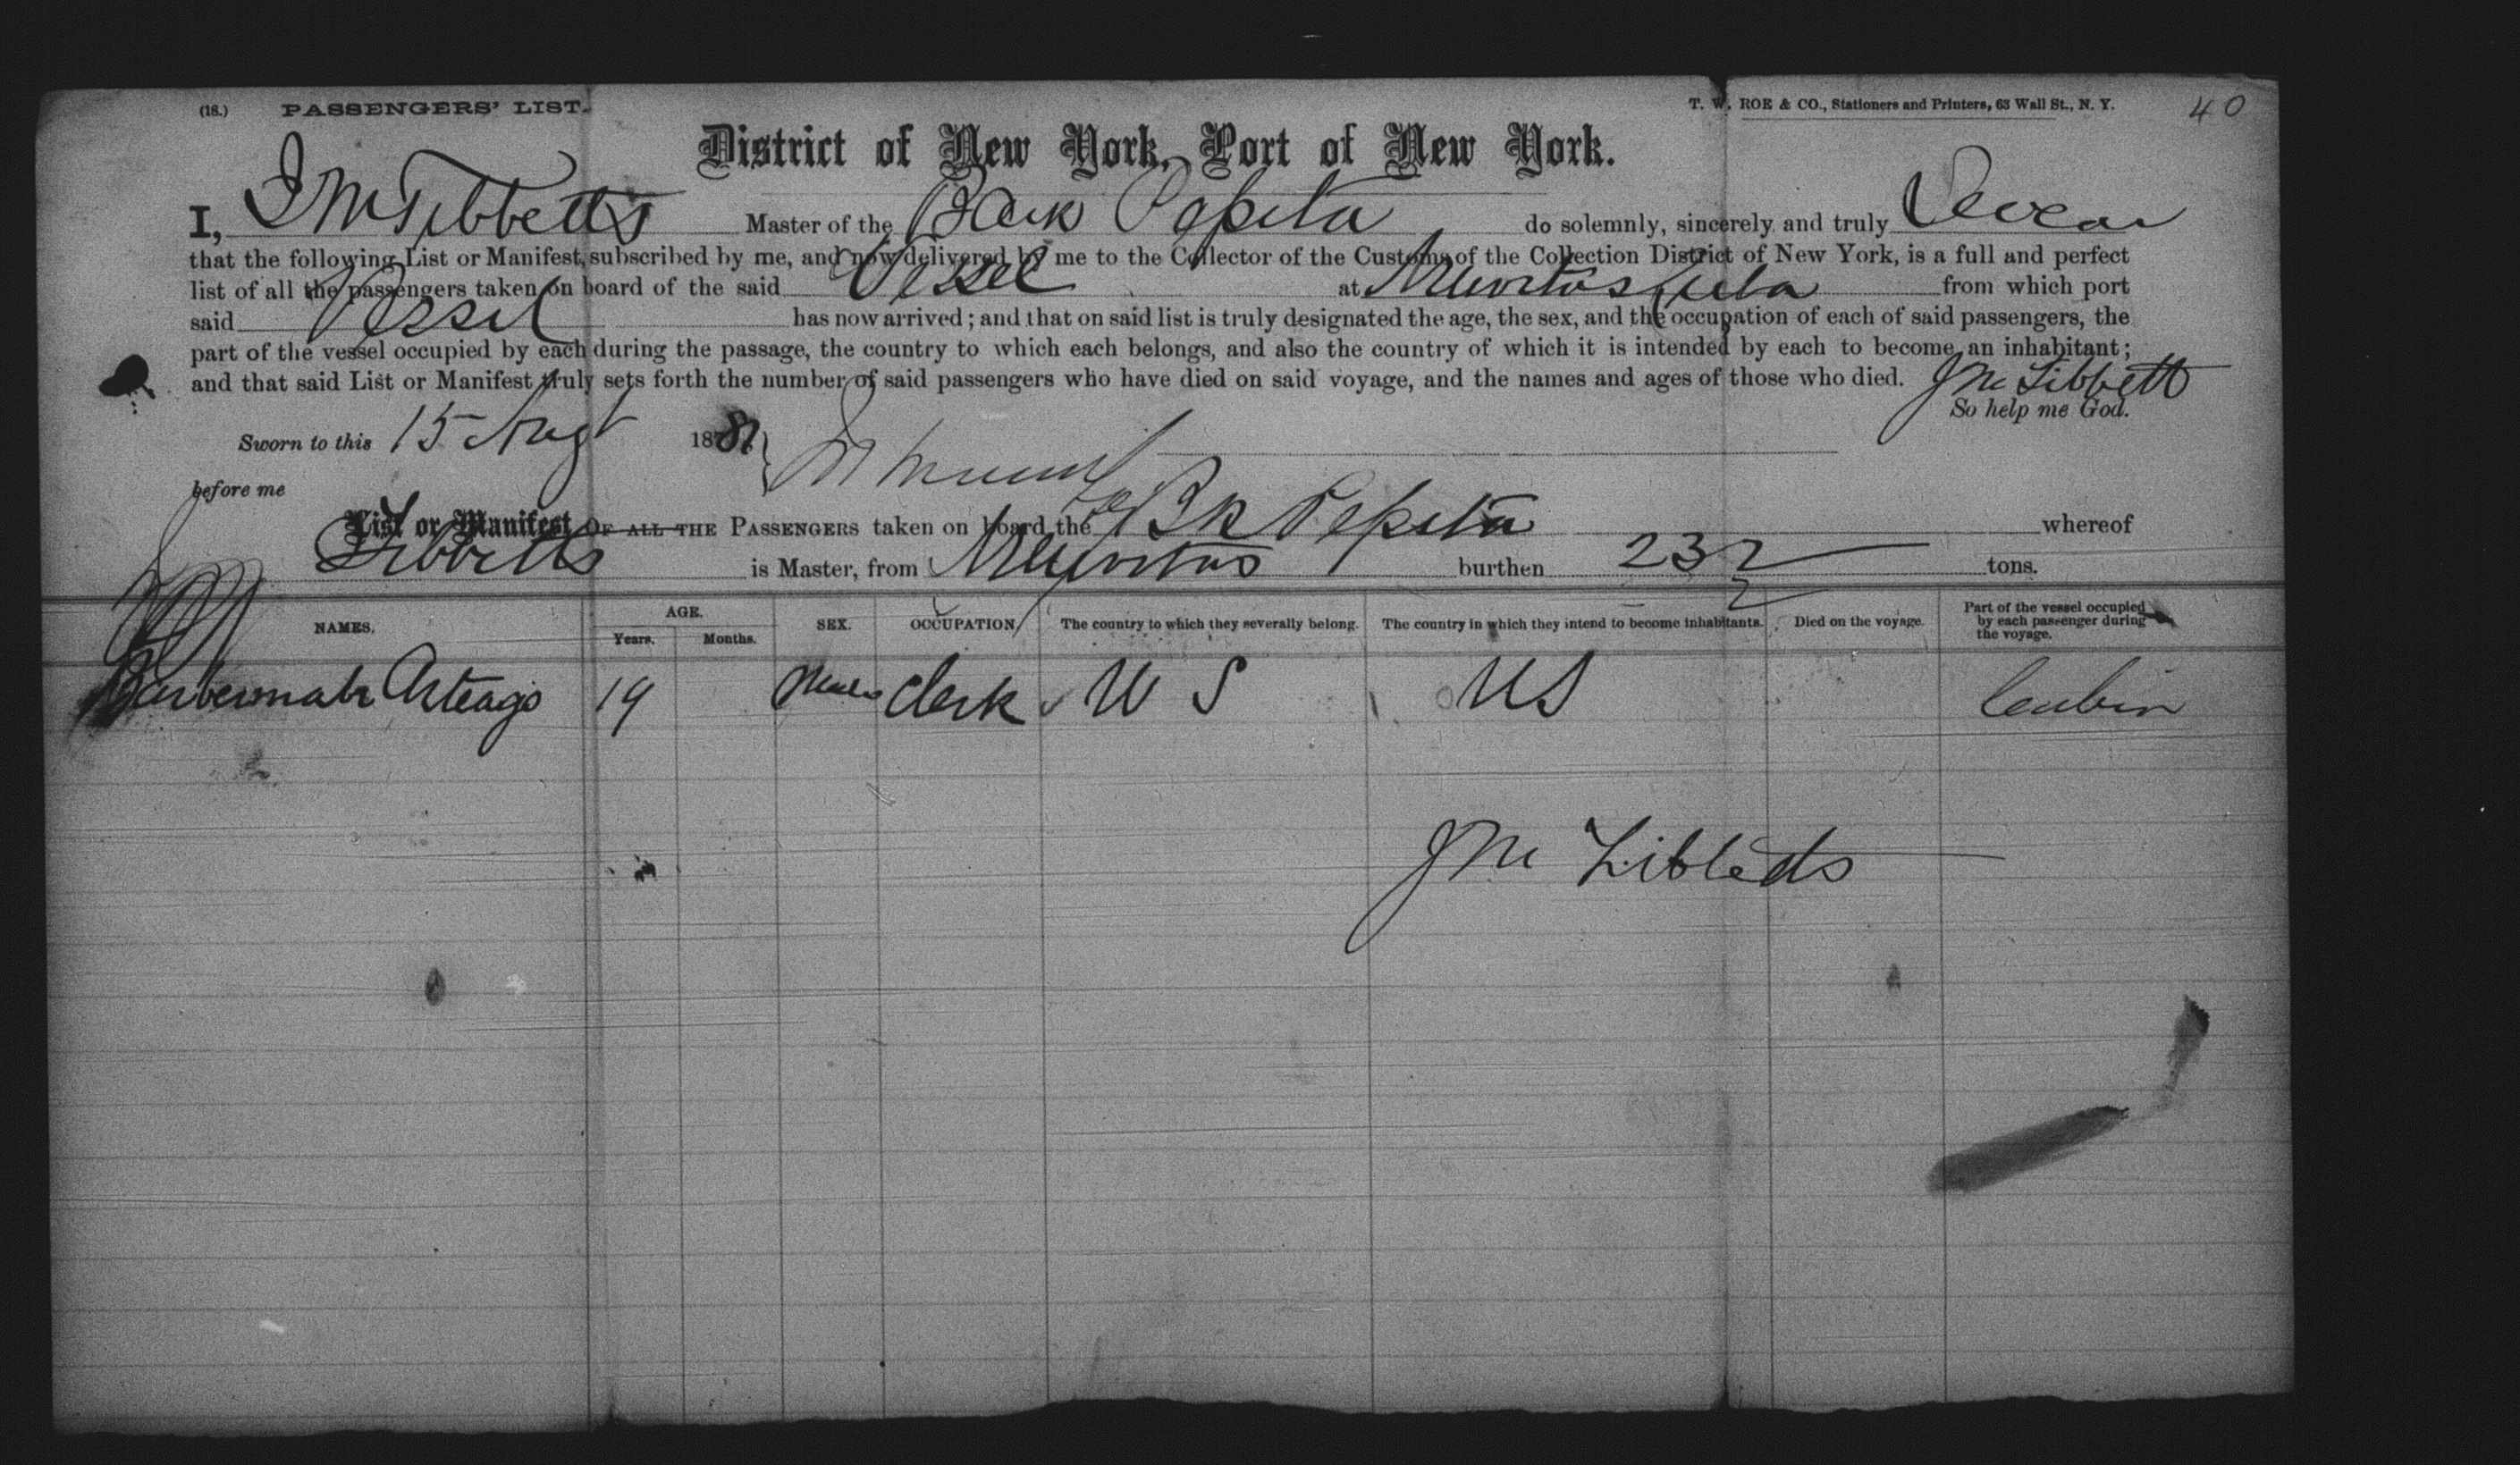 (18.) PASSENGERS' LIST. T. W. ROE & CO., Stationers and Printers, 63 Wall St., N. Y. 40
District of New York, Port of New York.
I, J M Tibbetts Master of the Bark Pepita do solemnly, sincerely and truly Swear
that the following List or Manifest, subscribed by me, and now delivered by me to the Collector of the Customs of the Collection District of New York, is a full and perfect
list of all the passengers taken on board of the said Vessel at Nuevitas Cuba from which port
said Vessel has now arrived; and that on said list is truly designated the age, the sex, and the occupation of each of said passengers, the
part of the vessel occupied by each during the passage, the country to which each belongs, and also the country of which it is intended by each to become an inhabitant;
and that said List or Manifest truly sets forth the number of said passengers who have died on said voyage, and the names and ages of those who died. J M Tibbetts
So help me God.
Sworn to this 15 Augt 1881
before me
List or Manifest OF ALL THE PASSENGERS taken on board the Bk Pepita whereof
Tibbetts is Master, from Nuevitas burthen 232 tons.
NAMES. AGE. Years. Months. SEX. OCCUPATION The country to which they severally belong. The country in which they intend to become inhabitants. Died on the voyage. Part of the vessel occupied by each passenger during the voyage.
Arteago 19 Male Clerk U S US Cabin
J M Tibbetts